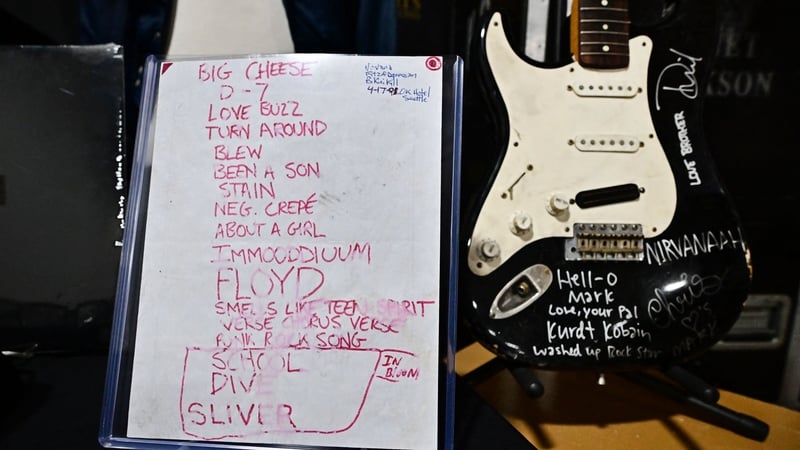 BIG CHEESE
D-7
LOVE BUZZ
TURN AROUND
BLEW
BEEN A SON
STAIN
NEG. CREPÉ
ABOUT A GIRL
IMMOODDIUUM
FLOYD
SMELLS LIKE TEEN SPIRIT
VERSE CHORUS VERSE
PUNK ROCK SONG
SCHOOL
DIVE
SLIVER
IN
BLOOM
Bikini Kill
4-17-91 OK Hotel
Seattle
LOVE
NIRVANAAH
Hell-o
Mark
Love, your Pal
Kurdt Kobain
washed up Rock Star
SON